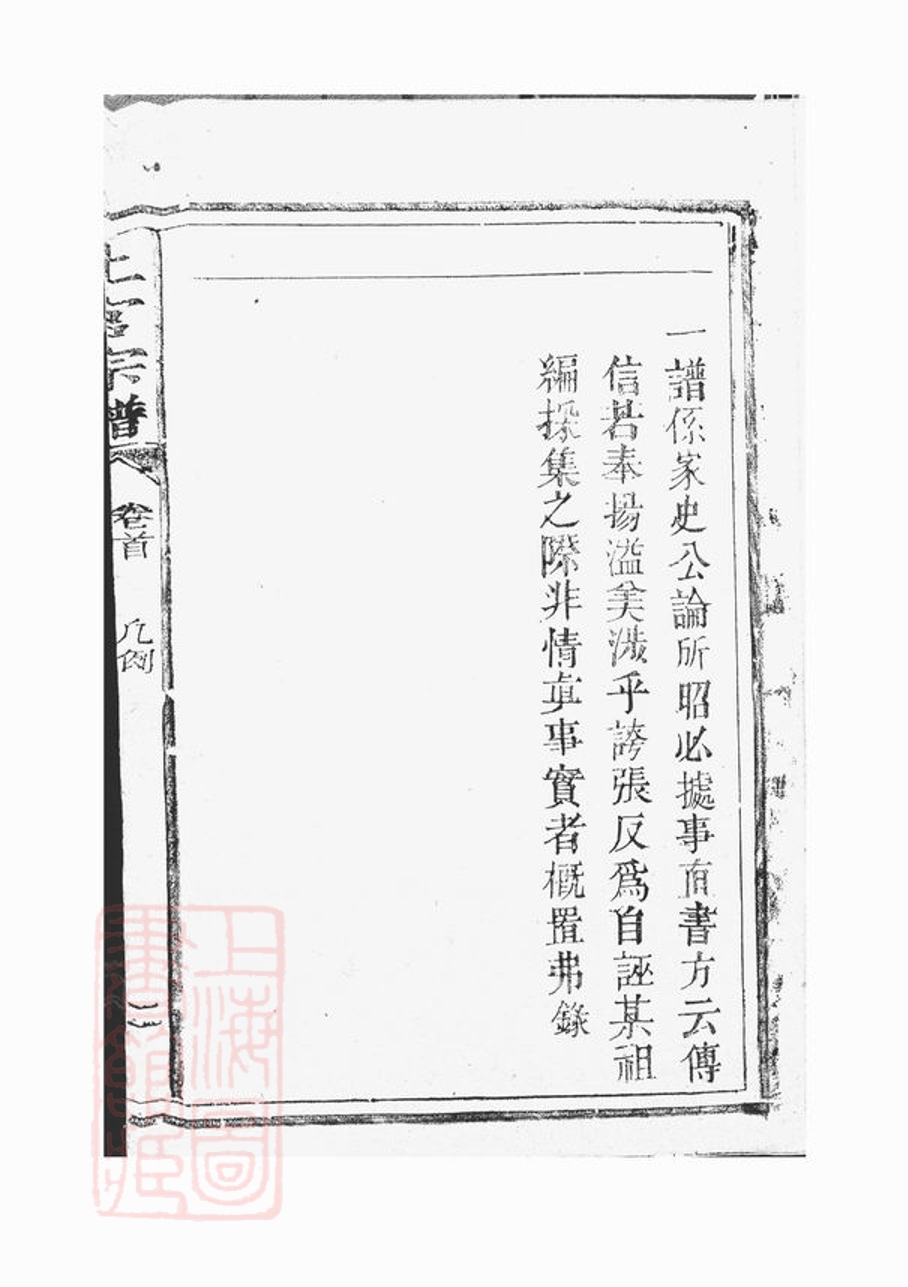 一譜係家史公論所昭必據事直書方云傳
信若奉揚溢美濺乎誇張反爲自誣某祖
編採集之際非情真事實者概置弗錄
上官宗譜
卷首
凡例
二
上海圖
書館藏